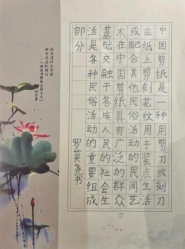 中国剪纸是一种用剪刀或刻刀
在纸上剪刻花纹用于装点生活
或配合其他民俗活动的民间艺
术在中国剪纸具有广泛的群众
基础交融于各族人民的社会生
活是各种民俗活动的重要组成
部分